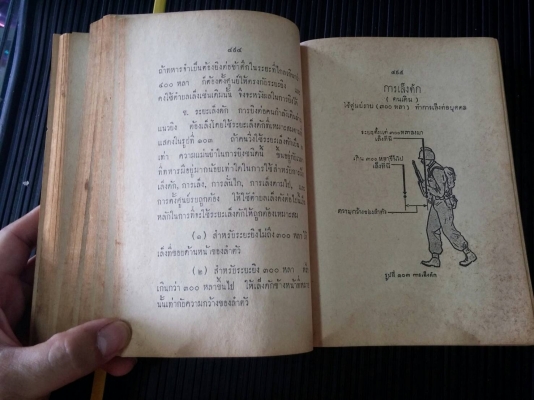 ๔๕๔
ถ้าทหารจำเป็นต้องยิงต่อข้าศึกในระยะที่ไกลกว่า
๔๐๐ หลา ก็ต้องตั้งศูนย์ให้ตรงกับระยะยิง
คงใช้ตำบลเล็งเช่นเดิมนั้น จึงจะหวังผลในการยิงได้
ข. ระยะเล็งดัก การยิงต่อคนกำลังเดิน
แนวยิง ต้องเล็งโดยใช้ระยะเล็งดักที่เหมาะสม
แสดงในรูปที่ ๑๐๓ ถ้าคนวิ่งใช้ระยะเล็งดักเป็น
เท่า ความแม่นยำในการยิงชนิดนี้ ขึ้นอยู่กับ
ทหารมีอยู่มากน้อยเท่าใดในการใช้สำหรับการ
เล็งดัก, การเล็ง, การลั่นไก, การเล็งตามไป, และ
การตั้งศูนย์ระยะถูกต้อง ให้ใช้ตำบลเล็งดังต่อไปนี้
หลักในการที่จะใช้ระยะเล็งดักให้ถูกต้องเหมาะสม
(๑) สำหรับระยะยิงไม่ถึง ๓๐๐ หลา ให้
เล็งที่ขอบด้านหน้าของลำตัว
(๒) สำหรับระยะยิง ๓๐๐ หลา หรือ
เกินกว่า ๓๐๐ หลาขึ้นไป ให้เล็งดักข้างหน้า
นั้นเท่ากับความกว้างของลำตัว
๔๕๕
การเล็งดัก
( คนเดิน )
(ใช้ศูนย์รบ (๓๐๐ หลา) ทำการเล็งต่อบุคคล
ระยะต่ำกว่า ๓๐๐ หลา
เล็งที่นี่
เกิน ๓๐๐ หลาขึ้นไป
เล็งที่นี่
ความกว้างของลำตัว
รูปที่ ๑๐๓ การเล็งดัก